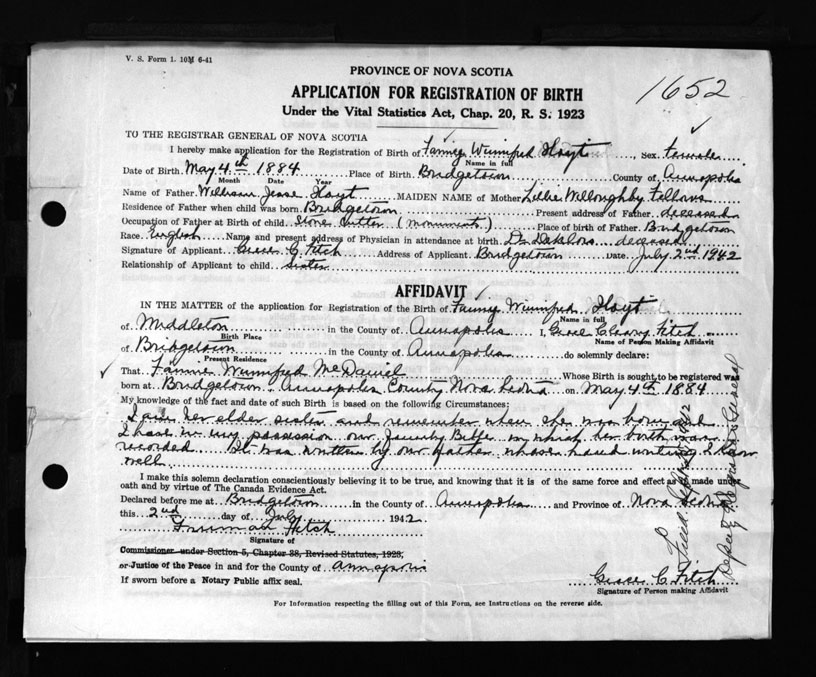 V. S. Form 1. 10M 6-41
1652
PROVINCE OF NOVA SCOTIA
APPLICATION FOR REGISTRATION OF BIRTH
Under the Vital Statistics Act, Chap. 20, R. S. 1923
TO THE REGISTRAR GENERAL OF NOVA SCOTIA
I hereby make application for the Registration of Birth of Fannie Winnifred Hoyt, Sex female
Name in full
Date of Birth May 4th 1884 Place of Birth Bridgetown County of Annapolis
Month Date Year
Name of Father William Jesse Hoyt MAIDEN NAME of Mother Lillie Willoughby Fellows
Residence of Father when child was born Bridgetown Present address of Father deceased
Occupation of Father at Birth of child Stone Cutter (monument) Place of birth of Father Bridgetown
Race English Name and present address of Physician in attendance at birth Dr deceased
Signature of Applicant Grace C Fitch Address of Applicant Bridgetown Date July 2nd 1942
Relationship of Applicant to child sister
AFFIDAVIT
IN THE MATTER of the application for Registration of the Birth of Fannie Winnifred Hoyt
Name in full
of Middleton in the County of Annapolis I, Grace Fitch
Birth Place Name of Person Making Affidavit
of Bridgetown in the County of Annapolis do solemnly declare:
Present Residence
That Fannie Winnifred McDaniel Whose Birth is sought to be registered was
born at Bridgetown Annapolis County Nova Scotia on May 4th 1884
My knowledge of the fact and date of such Birth is based on the following Circumstances:
I am her elder sister and remember when she was born and
I have in my possession our Family Bible in which her birth was
recorded. It was written by our father whose hand writing I know
well.
I make this solemn declaration conscientiously believing it to be true, and knowing that it is of the same force and effect as if made under
oath and by virtue of The Canada Evidence Act.
Declared before me at Bridgetown in the County of Annapolis and Province of Nova Scotia
this 2nd day of July 1942
Freeman Fitch
Signature of
Commissioner under Section 5, Chapter 38, Revised Statutes, 1923,
or Justice of the Peace in and for the County of Annapolis
If sworn before a Notary Public affix seal.
Grace C. Fitch
Signature of Person making Affidavit
For Information respecting the filling out of this Form, see Instructions on the reverse side.
Deputy Registrar General